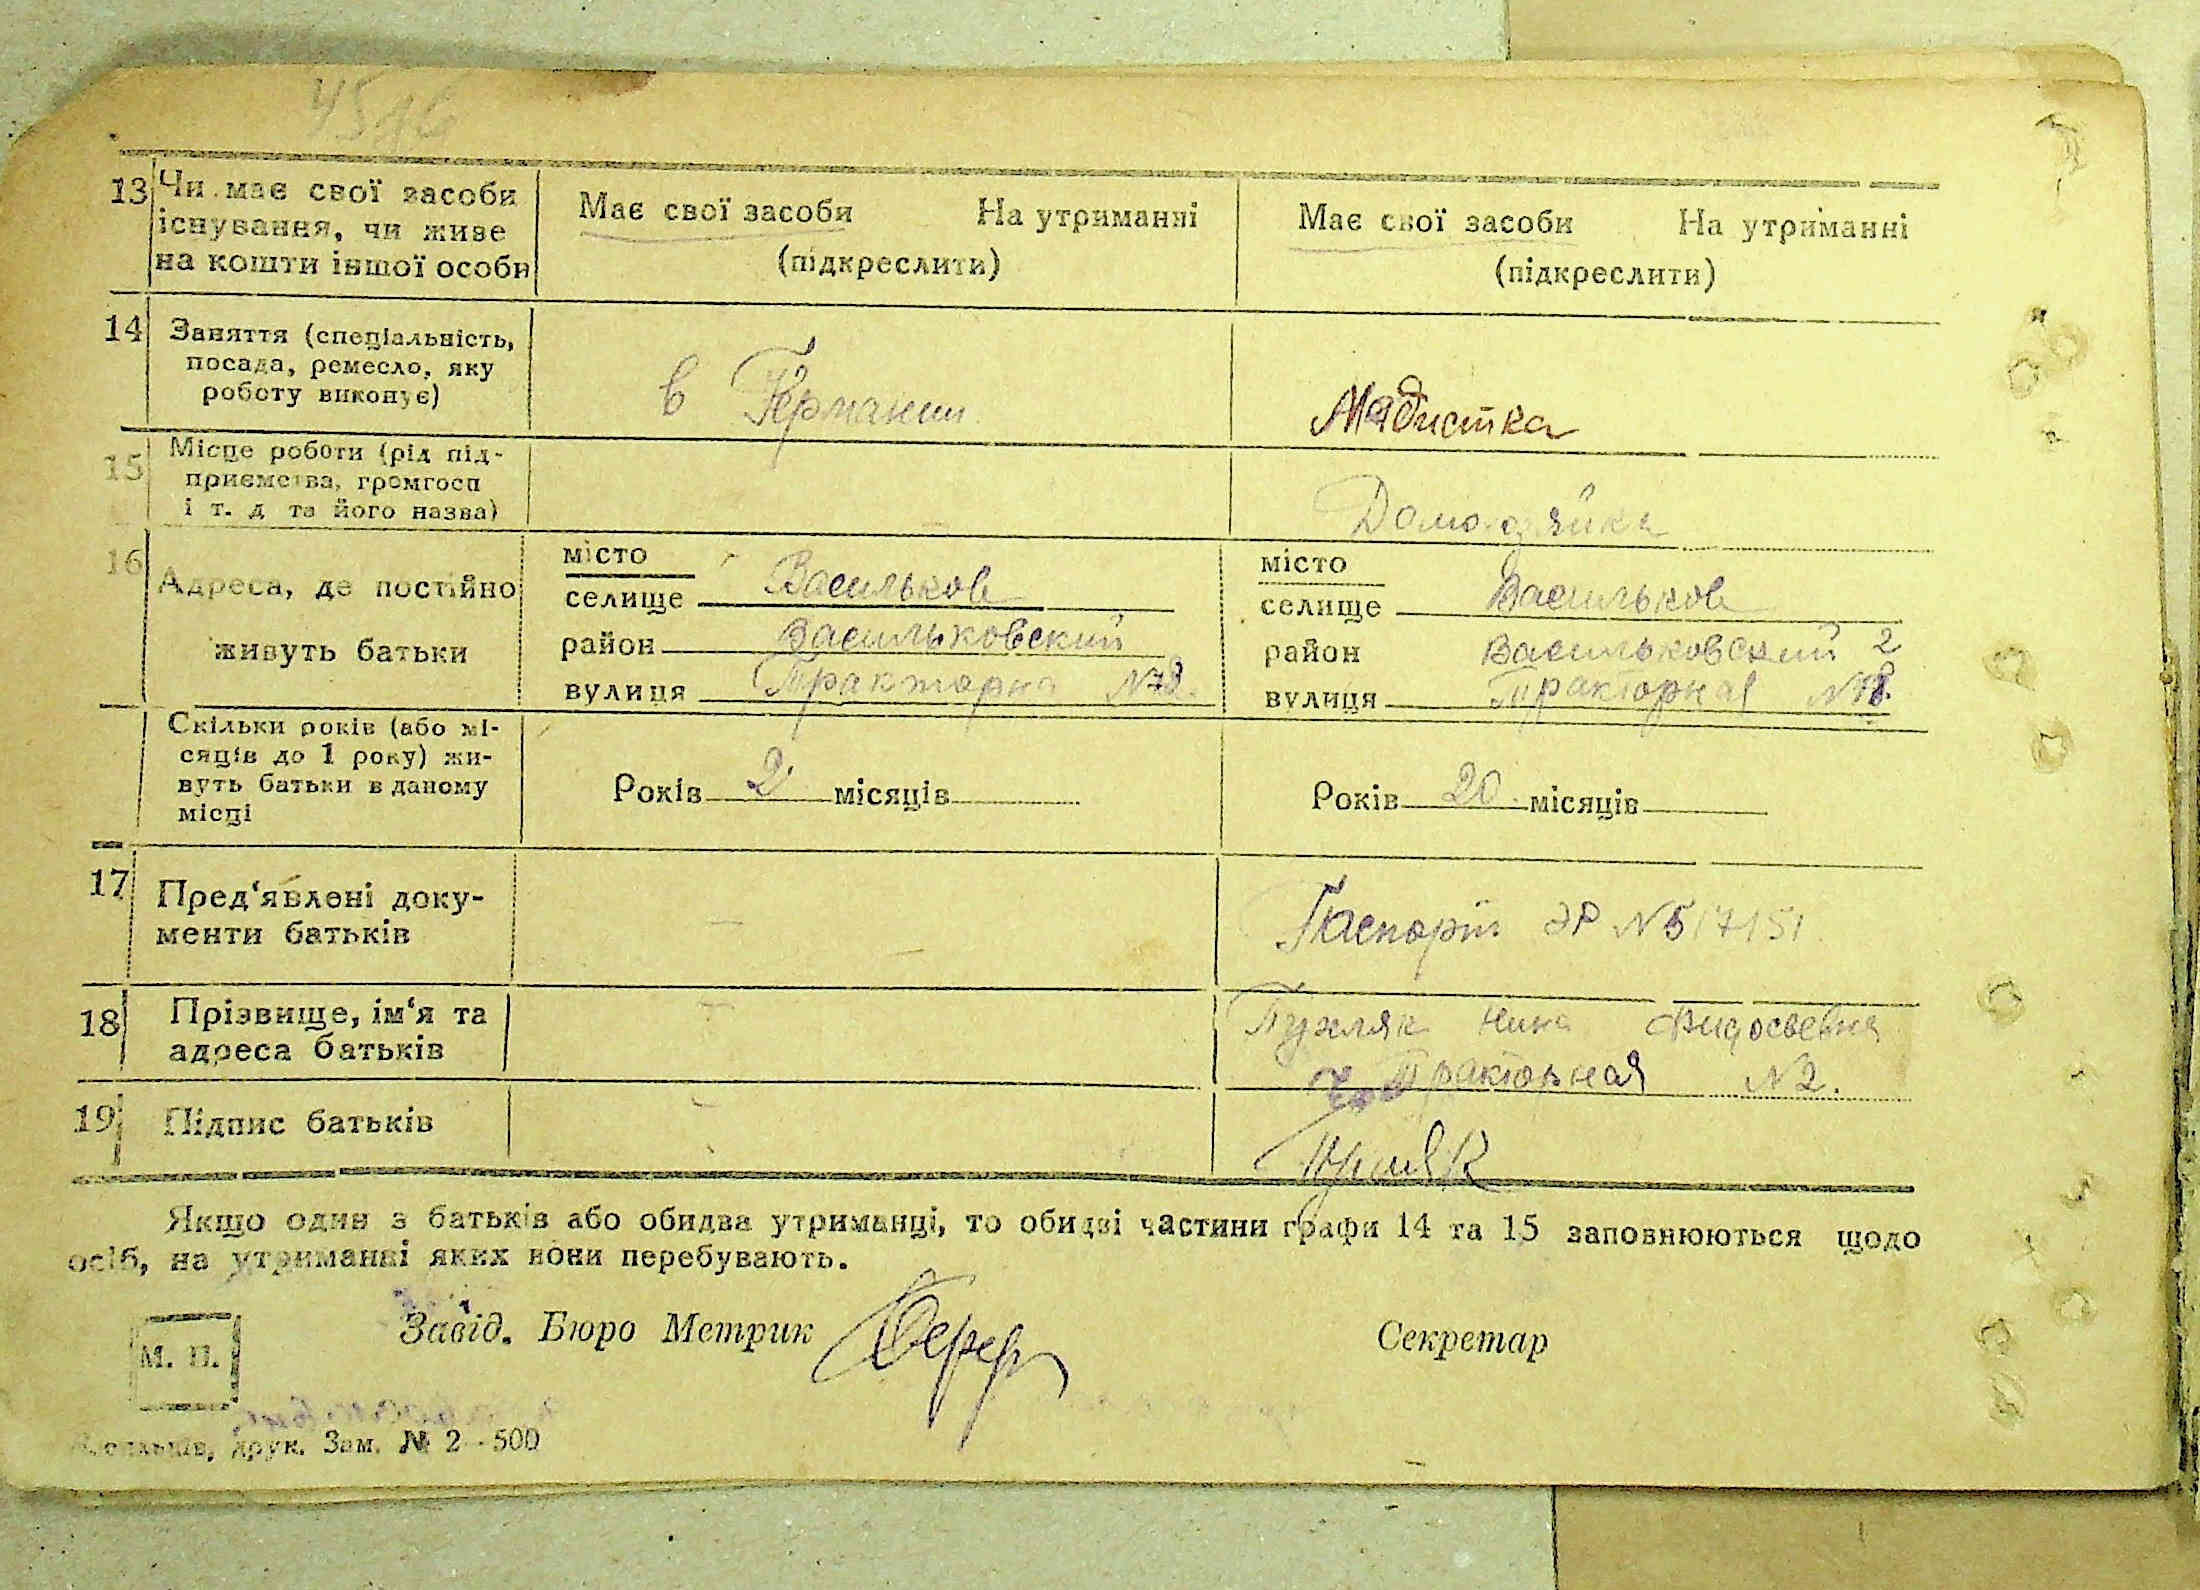 13 Чи має свої засоби
існування, чи живе
на кошти іншої особи
Має свої засоби На утриманні
(підкреслити)
Має свої засоби На утриманні
(підкреслити)
14 Заняття (спеціальність,
посада, ремесло, яку
роботу виконує)
в Германии
Модистка
15 Місце роботи (рід під-
приємства, громгосп
і т. д та його назва)
Домохозяйка
16 Адреса, де постійно
живуть батьки
місто
селище Васильков
район Васильковский
вулиця Тракторна
місто
селище Васильков
район Васильковский 2
вулиця Тракторная
Скільки років (або мі-
сяців до 1 року) жи-
вуть батьки в даному
місці
Років 2 місяців
Років 20 місяців
17 Пред'явлені доку-
менти батьків
Паспорт ЭР №517151
18 Прізвище, ім'я та
адреса батьків
Нина
Тракторная №2.
19 Підпис батьків
Якщо один з батьків або обидва утриманці, то обидві частини графи 14 та 15 заповнюються щодо
осіб, на утриманні яких вони перебувають.
Завід. Бюро Метрик
Секретар
М. П.
друк. Зам. № 2—500